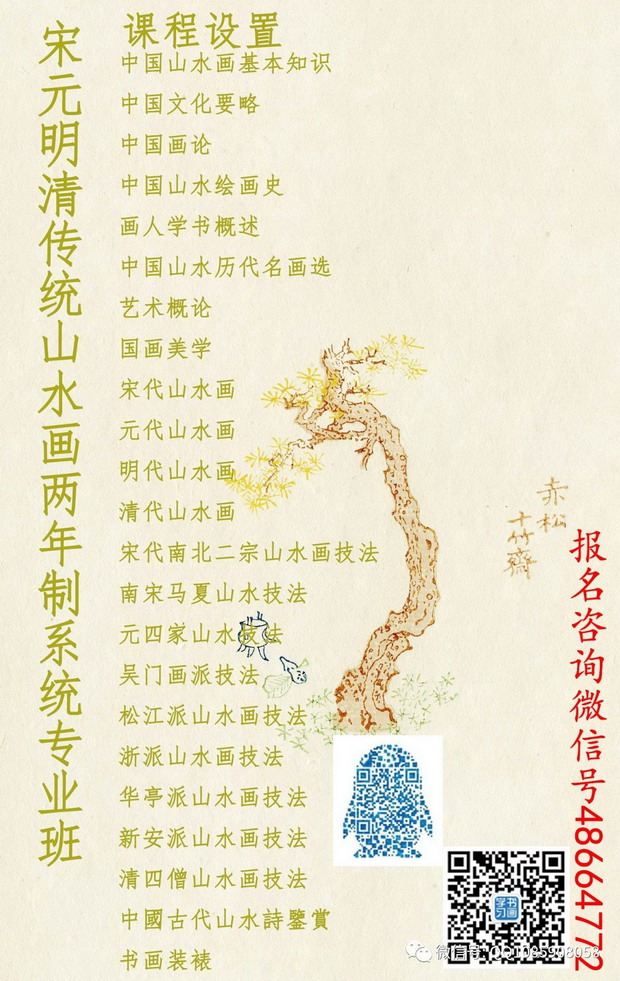 宋元明清传统山水画两年制系统专业班
课程设置
中国山水画基本知识
中国文化要略
中国画论
中国山水绘画史
画人学书概述
中国山水历代名画选
艺术概论
国画美学
宋代山水画
元代山水画
明代山水画
清代山水画
宋代南北二宗山水画技法
南宋马夏山水技法
元四家山水技法
吴门画派技法
松江派山水画技法
浙派山水画技法
华亭派山水画技法
新安派山水画技法
清四僧山水画技法
中國古代山水詩鑒賞
书画装裱
赤松
十竹齋
报名咨询微信号48664772
书画
学习
微信号: QQ1085908058